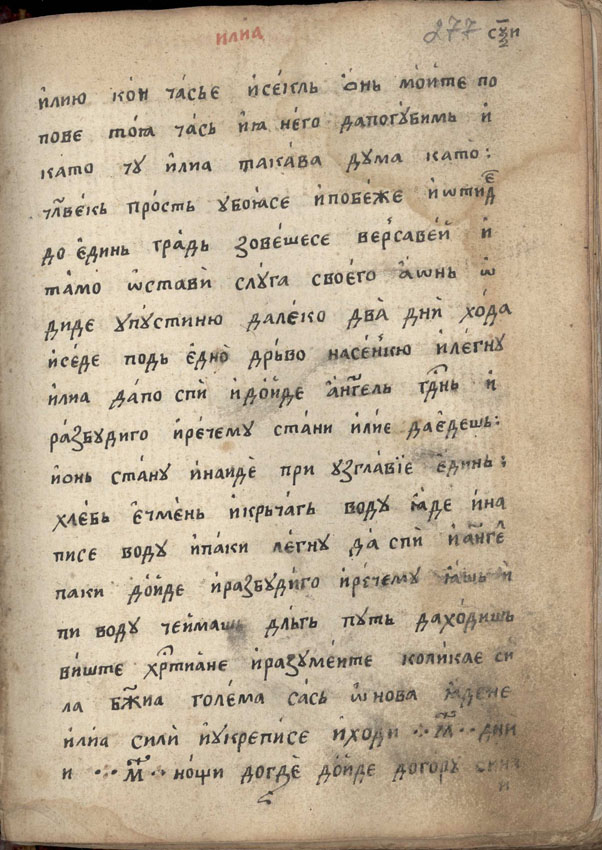 илиа 277 сѯ҃и
и҆лию кои́ ча́сье и҆се́кль ѻ҆нь мо́ите по
пове то́ꙗ ча́сь и҆ꙗ него дапогу́бимь и҆
като ту и҆лиа така́ва дума като :
чл҃векь про́сть убоꙗ́се и҆побе́же и҆ѿтид̾е
до е҆динь гра́дь зове́шесе верса́вей и҆
та́мо ѡ҆стави̏ слу́га своего а҆ѡнь ѿ
диде у҆пу́стиню дале́ко два̀ дни̏ хо́да
и҆се́де подь е҆дно̀ дрь́во насе́нкю и҆ле́гну
и҆лиа да́по спи̏ и҆до́йде а҆нг҃ель гдн҃ь и҆
ра́збудиго и҆ре́чему ста́ни и҆ли́е дае́дешь :
и҆онь ста́ну и҆наиде̏ при узгла́вїе е҆динь :
хле́бь е҆чме́нь и҆крьча́гь воду ꙗ҆де и҆на
писе воду и҆па́ки ле́гну да̀ спи̏ и҆а҆нг҃ел
паки до́йде и҆ра́збудиго и҆ре́чему ꙗ҆шь и҆
пи воду че́ймашь дль́гь путь дахо́дишь
ви́ште хрⷭ҇тиа́не и҆разуме́ите коли́кае си
ла бж҃иа голе́ма са́сь ѡ҆нова ꙗ҆дене
и҆лиа сили̏ и҆укрепи́се и҆ходи ·:· м҃ ·:· дни
и ·:· м҃ ·:· но́щи догде̏ до́йде догору̀ сина
и